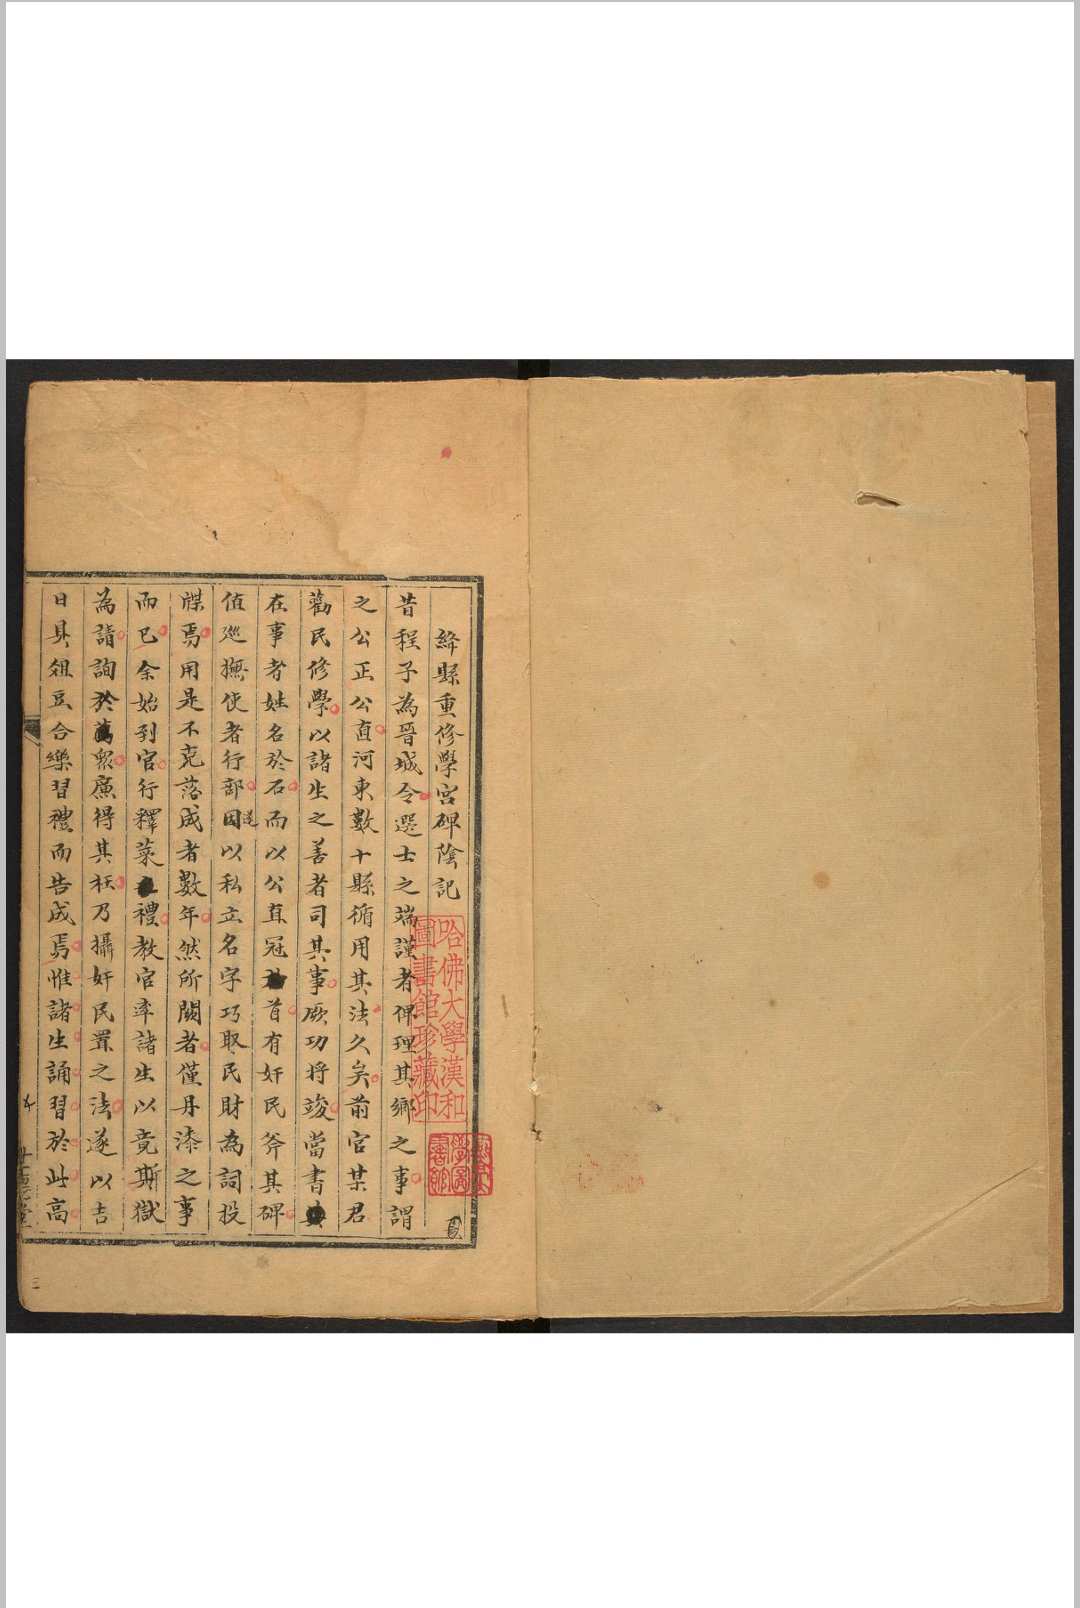 絳縣重修學宮碑陰記
昔程子為晉城令選士之端謹者俾理其鄉之事謂
之公正公直河東數十縣循用其法久矣前官某君
勸民修學以諸生之善者司其事厥功將竣當書
在事者姓名於石而以公直冠首有奸民斧其碑
值巡撫使者行部因以私立名字巧取民財為詞投
牒焉用是不克落成者數年然所闕者僅丹漆之事
而已余始到官行釋菜禮教官率諸生以竟斯獄
為請詢於眾廉得其枉乃攝奸民置之法遂以吉
日具俎豆合樂習禮而告成焉惟諸生誦習於此高
哈佛大學漢和
圖書館珍藏印